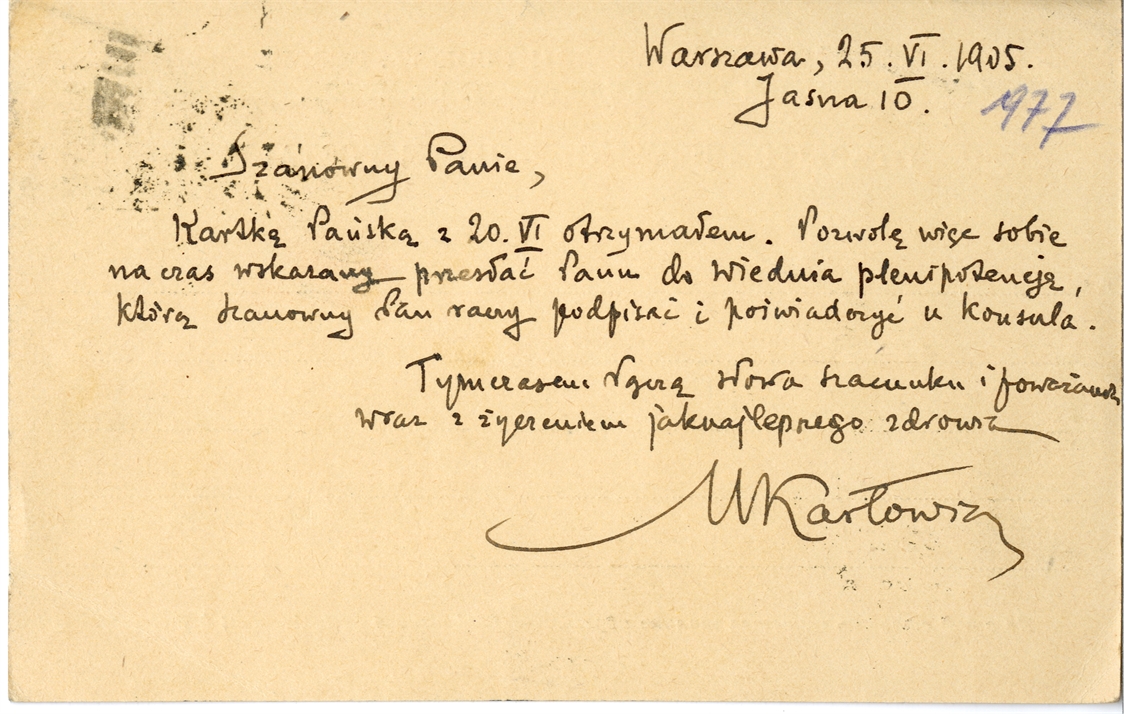 Warszawa, 25. VI. 1905.
Jasna 10.
1977
Szanowny Panie,
Kartkę Pańską z 20. VI otrzymałem. Pozwolę więc sobie
na czas wskazany przesłać Panu do Wiednia plenipotencję,
którą szanowny Pan raczy podpisać i poświadczyć u konsula.
Tymczasem łączę słowa szacunku i poważania
wraz z życzeniem jaknajlepszego zdrowia
MKarłowicz